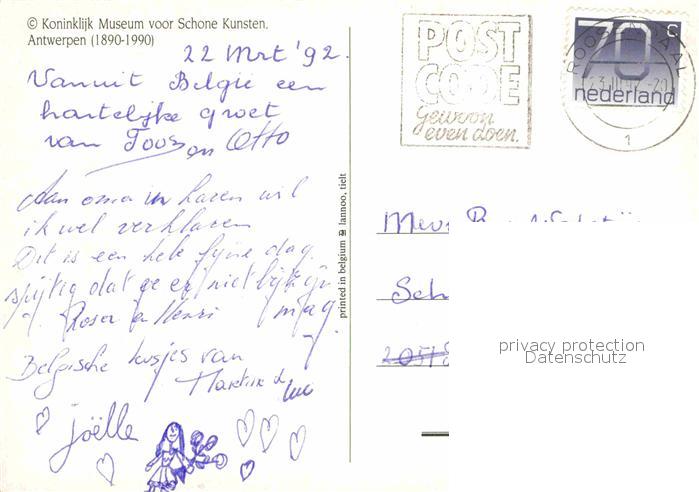 © Koninklijk Museum voor Schone Kunsten.
Antwerpen (1890-1990)
22 Mrt '92.
Vanuit België een
hartelijke groet
van Toos en Otto
Aan oma in haren wil
ik wel verklaren
Dit is een hele fijne dag
spijtig dat ge er niet bij
mag
Rosa en Henri
Belgische kusjes van
Martine de Luc
joëlle
printed in belgium lannoo, tielt
POST
CODE
Gewoon
even doen.
70 c
nederland
ROOSENDAAL
1
Mevr
Sch
privacy protection
Datenschutz